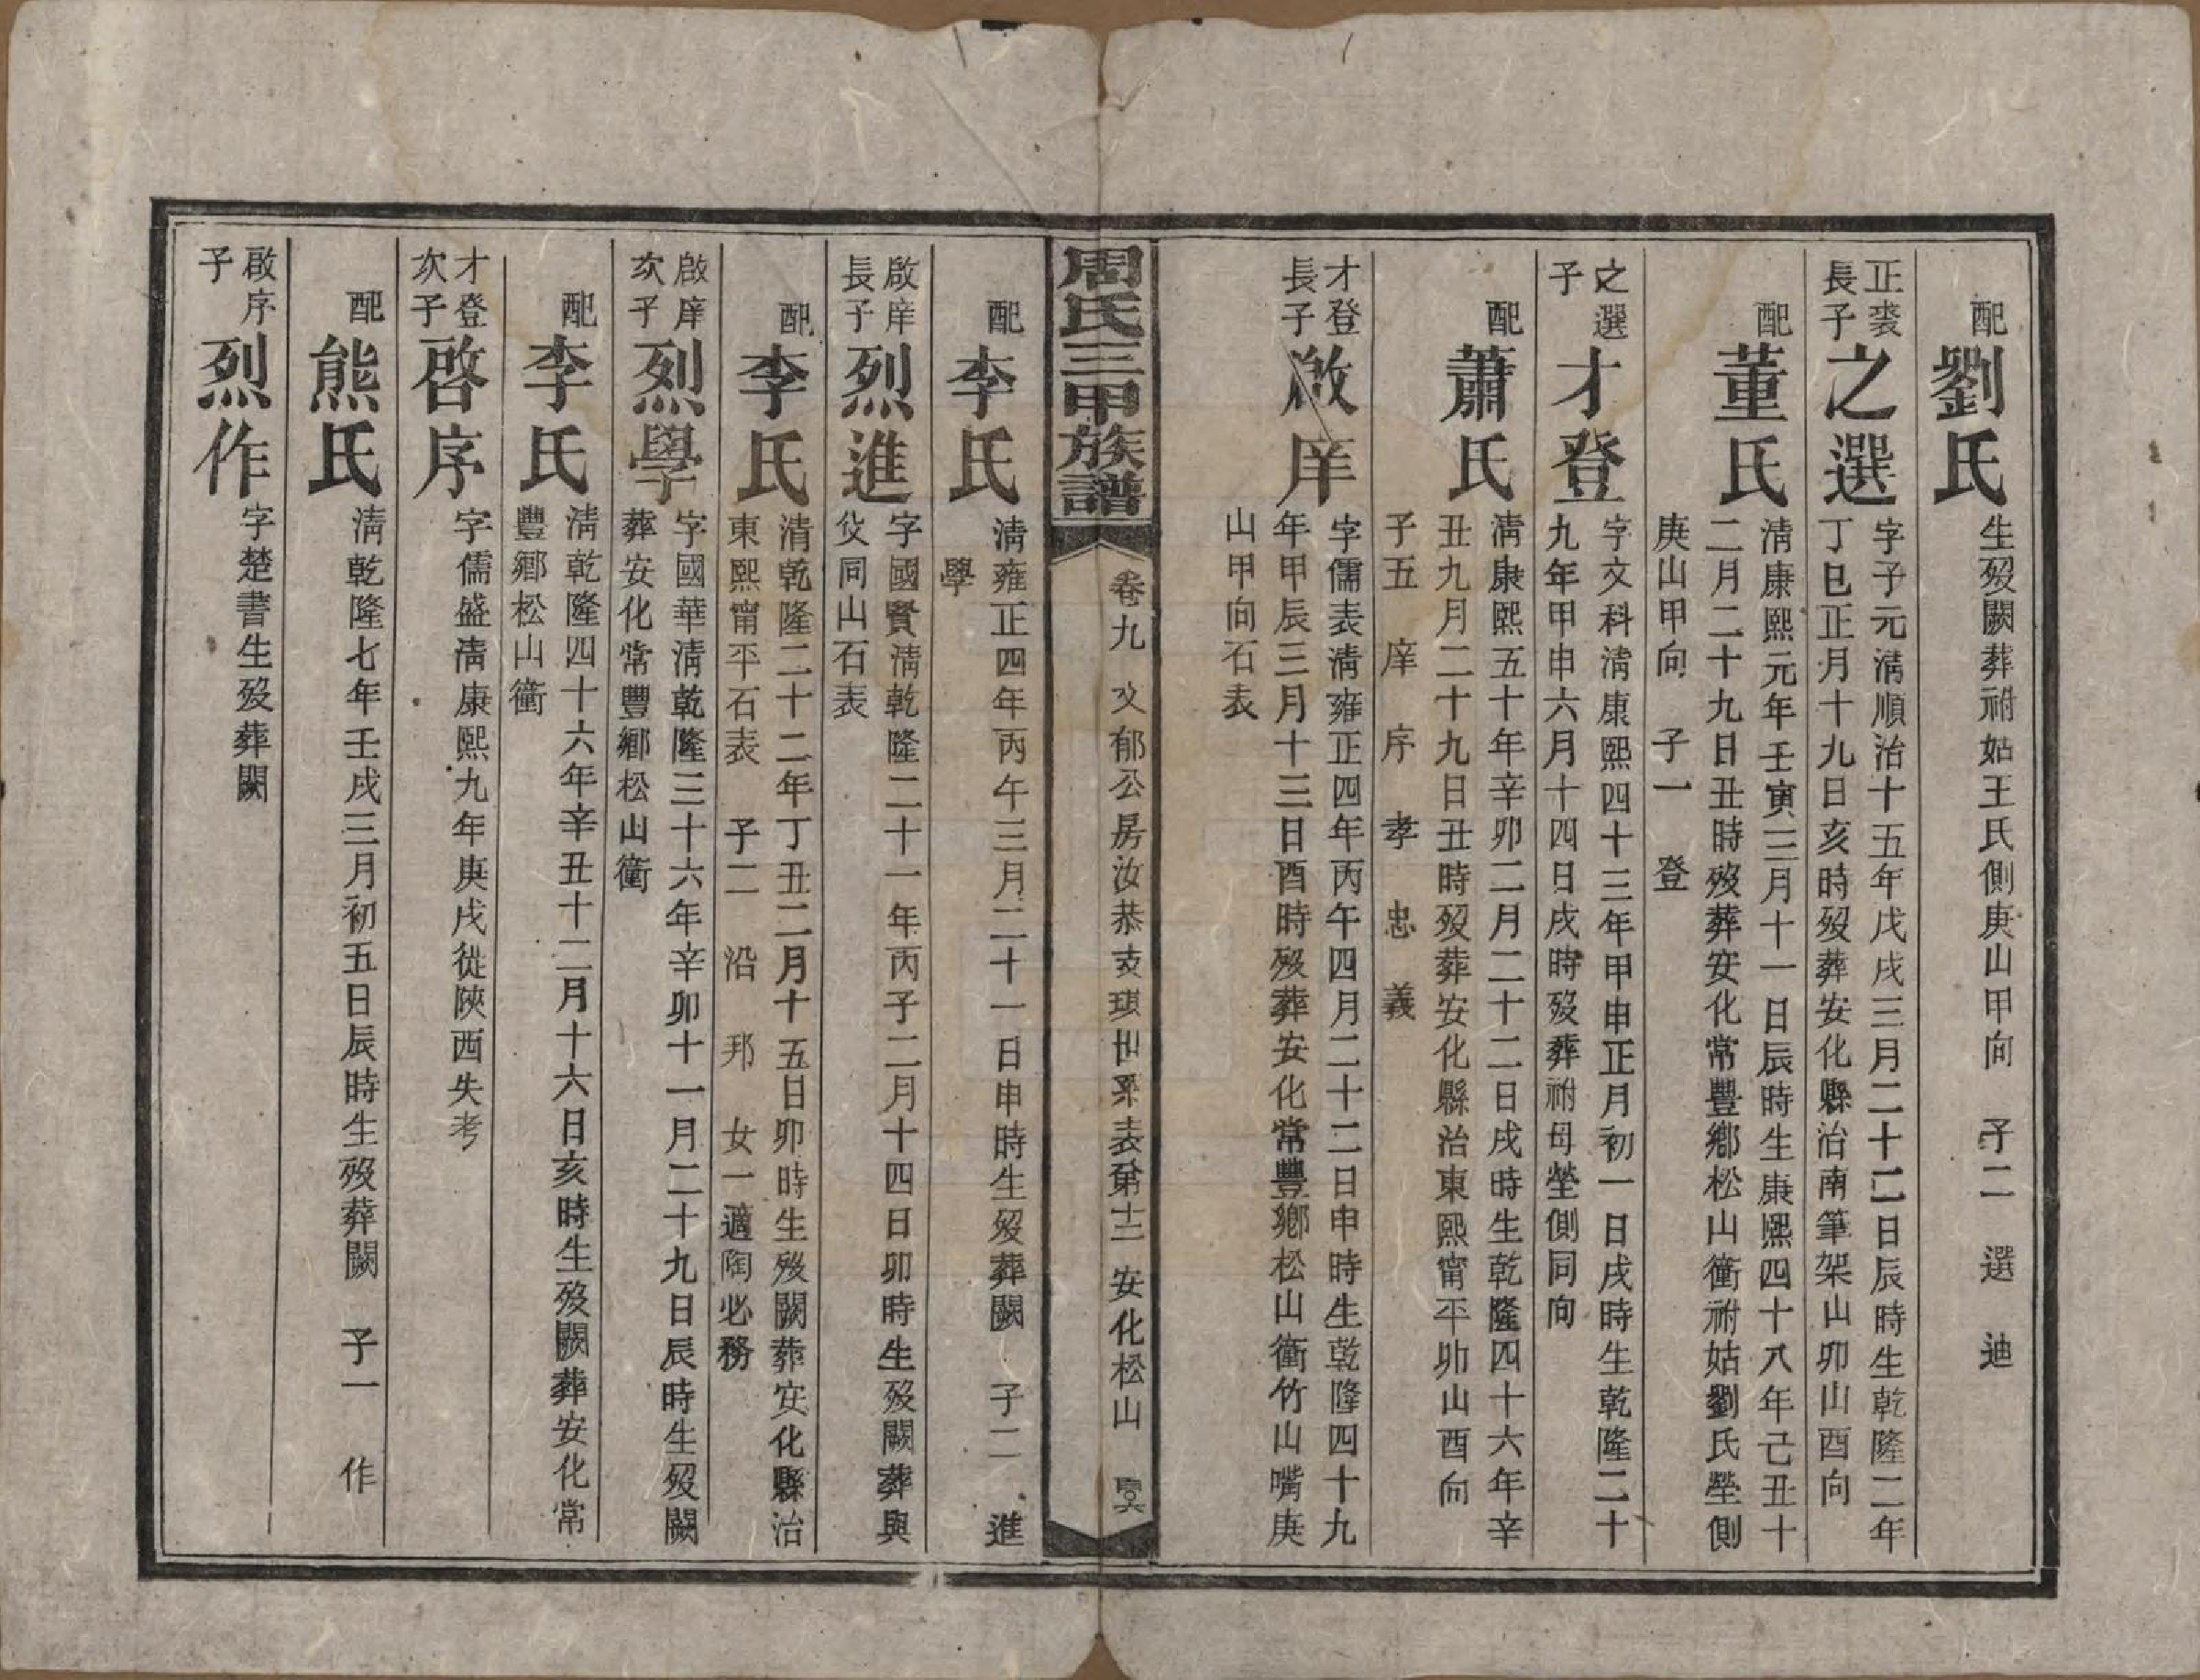 配劉氏生歿闕葬祔姑王氏側庚山甲向　子二　選　迪
正裘長子之選字子元淸順治十五年戊戌三月二十二日辰時生乾隆二年
丁巳正月十九日亥時歿葬安化縣治南筆架山卯山酉向
配董氏淸康熙元年壬寅三月十一日辰時生康熙四十八年己丑十
二月二十九日丑時歿葬安化常豐鄉松山衝祔姑劉氏塋側
庚山甲向　子一　登
之選子才登字文科淸康熙四十三年甲申正月初一日戌時生乾隆二十
九年甲申六月十四日戌時歿葬祔母塋側同向
配蕭氏淸康熙五十年辛卯二月二十二日戌時生乾隆四十六年辛
丑九月二十九日丑時歿葬安化縣治東熙甯平卯山酉向
子五　庠　序　孝　忠　義
才登長子啟庠字儒表淸雍正四年丙午四月二十二日申時生乾隆四十九
年甲辰三月十三日酉時歿葬安化常豐鄉松山衝竹山嘴庚
山甲向石表
周氏三甲族譜　卷九　文郁公房汝恭支琪世系表第十二　安化松山
配李氏淸雍正四年丙午三月二十一日申時生歿葬闕　子二　進
學
啟庠長子烈進字國賢淸乾隆二十一年丙子二月十四日卯時生歿闕葬與
父同山石表
配李氏淸乾隆二十二年丁丑二月十五日卯時生歿闕葬安化縣治
東熙甯平石表　子二　沿　邦　女一適陶必務
啟庠次子烈學字國華淸乾隆三十六年辛卯十一月二十九日辰時生歿闕
葬安化常豐鄉松山衝
配李氏淸乾隆四十六年辛丑十二月十六日亥時生歿闕葬安化常
豐鄉松山衝
才登次子啓序字儒盛淸康熙九年庚戌從陝西失考
配熊氏淸乾隆七年壬戌三月初五日辰時生歿葬闕　子一　作
啟序子烈作字楚書生歿葬闕